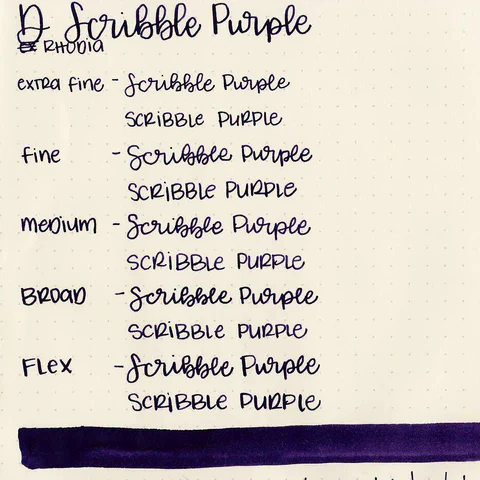 D Scribble Purple
RHODIA
extra fine - Scribble Purple
SCRIBBLE PURPLE
fine - Scribble Purple
SCRIBBLE PURPLE
medium - Scribble Purple
SCRIBBLE PURPLE
BROAD - Scribble Purple
SCRIBBLE PURPLE
FLEX - Scribble Purple
SCRIBBLE PURPLE